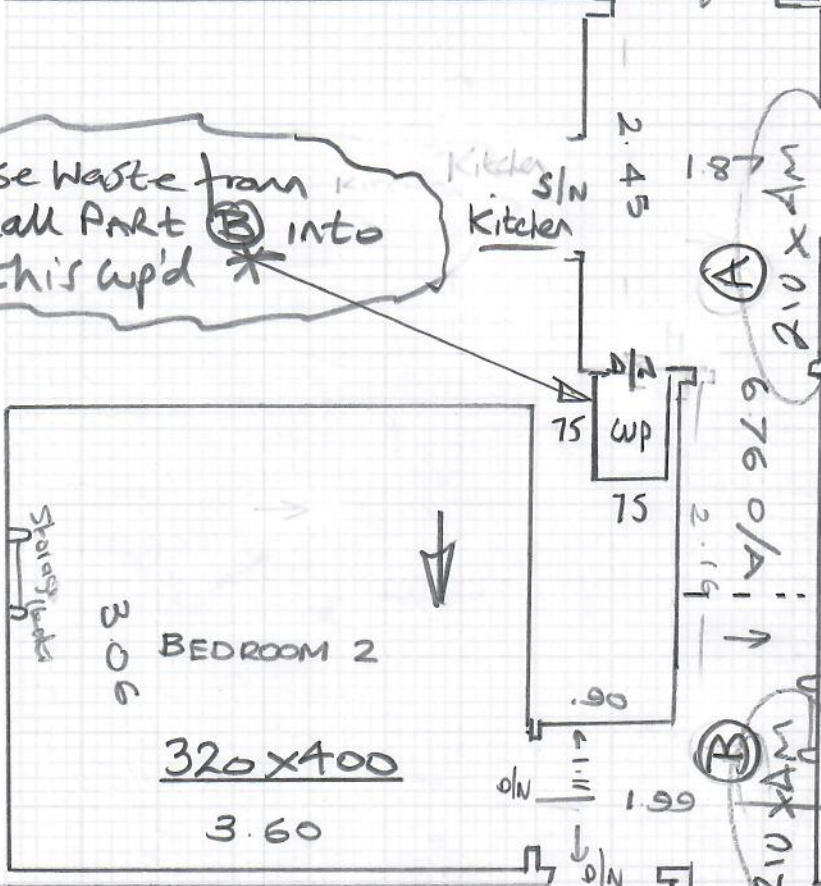 se Waste from
all PART B into
this cup'd *
Kitchen
S/N
Kitchen
2.45
1.8
210 x 4M
A
D/N
75
cup
75
6.76 O/A
2.19
Storage
3.06
BEDROOM 2
320 x 400
3.60
.90
1.11
D/N
1.99
B
210 x 4M
D/N